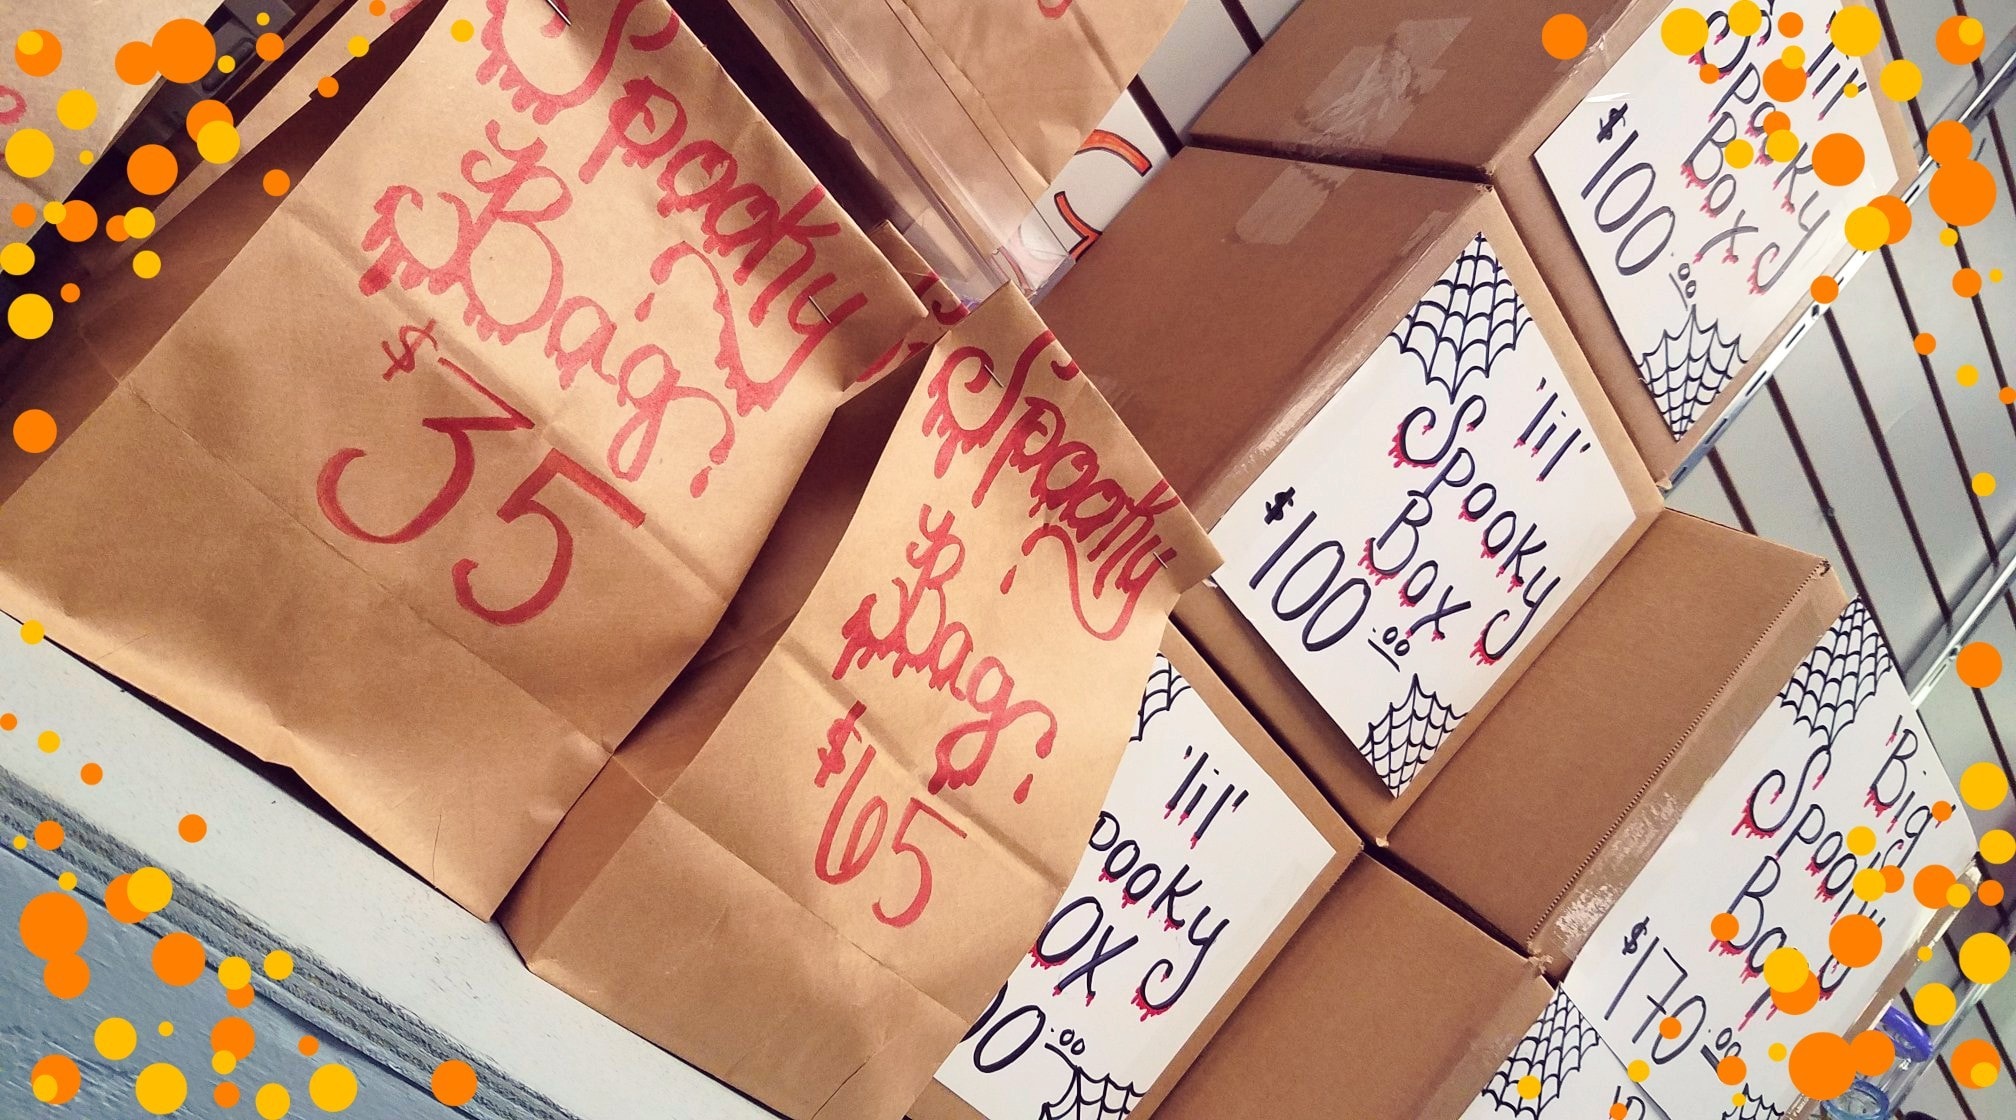 Spooky
Bag
$35
Spooky
Bag
$65
'lil'
Spooky
Box
$100.00
'lil'
Spooky
Box
$100.00
'lil'
pooky
ox
00.00
'Big'
Spooky
Box
$170.00